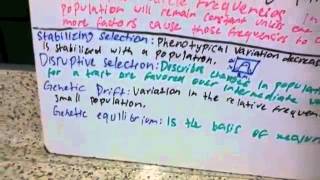 population will remain constant unless one
more factors cause those frequencies to c
Stabilizing selection: Phenotypical variation decreas
is stabilized with a population.
Disruptive selection: Describe changes in populati
for a trait are favored over intermediate va
Genetic Drift: variation in the relative freque
small population.
Genetic equilibrium: Is the basis of measur